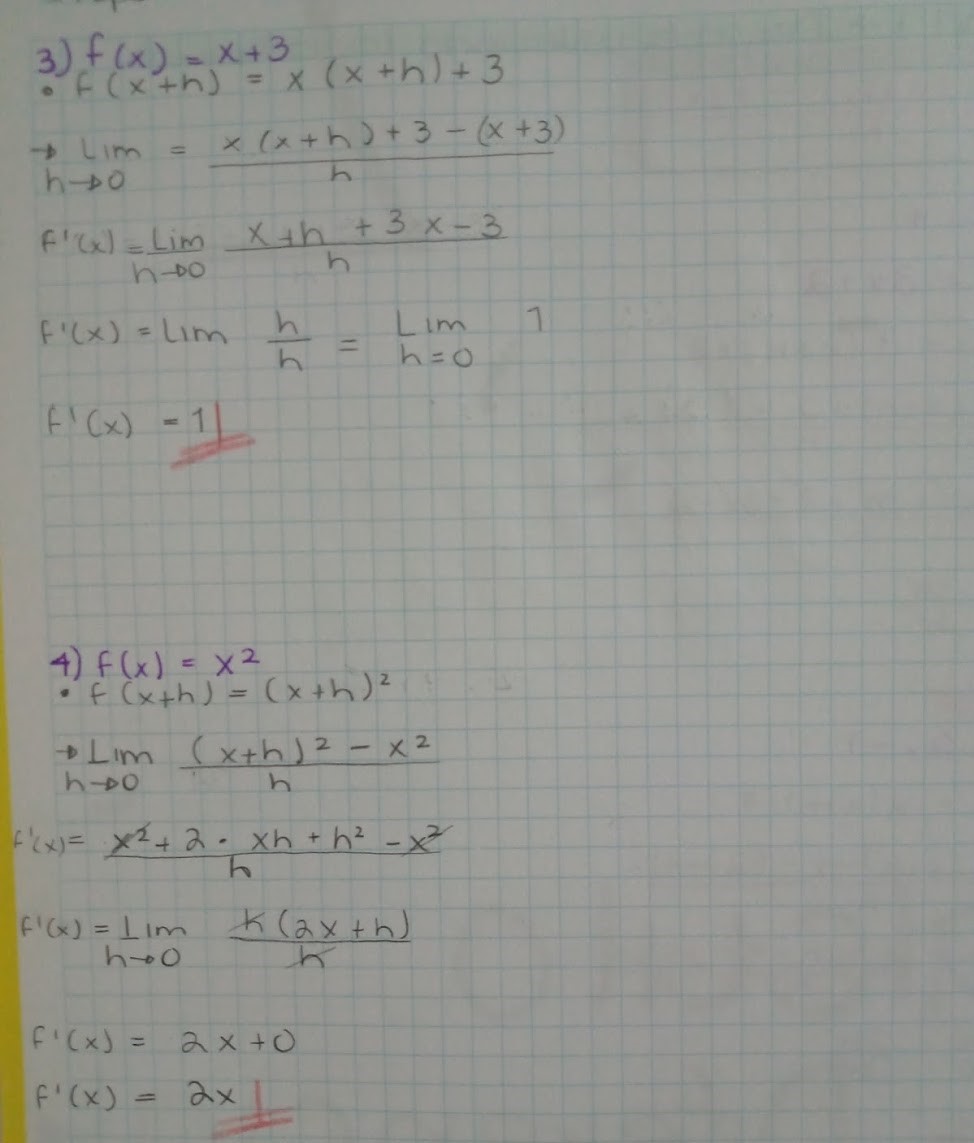 3) f(x) = x+3
• f(x+h) = x(x+h)+3
→ Lim = x(x+h)+3-(x+3)
h→0 h
f'(x) = Lim x+h+3x-3
h→0 h
f'(x) = Lim h/h = Lim 1
h=0
f'(x) = 1
4) f(x) = x²
• f(x+h) = (x+h)²
→ Lim (x+h)² - x²
h→0 h
f'(x) = x²+2·xh+h²-x²
h
f'(x) = Lim h(2x+h)
h→0 h
f'(x) = 2x+0
f'(x) = 2x